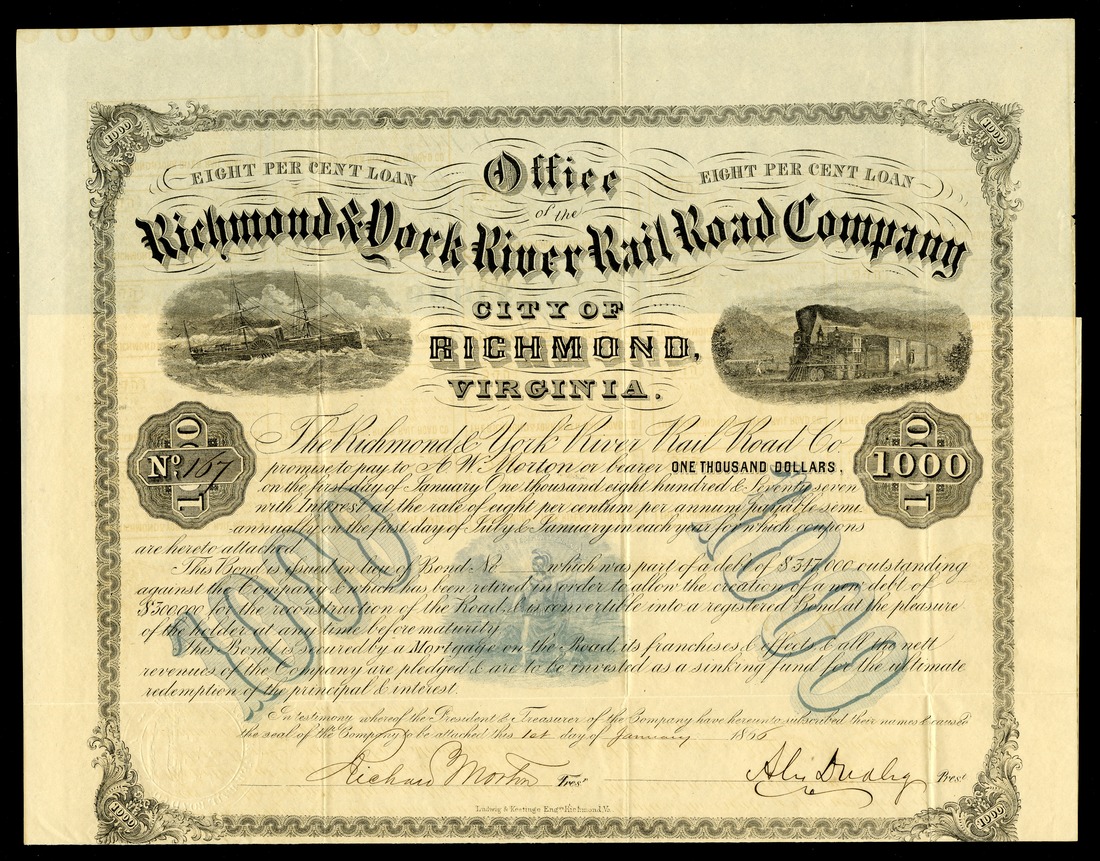 EIGHT PER CENT LOAN
Office
EIGHT PER CENT LOAN
of the
Richmond & York River Rail Road Company
CITY OF
RICHMOND,
VIRGINIA.
The Richmond & York River Rail Road Co.
promise to pay to A W Morton or bearer ONE THOUSAND DOLLARS,
on the first day of January One thousand eight hundred & Seventy seven
with Interest at the rate of eight per centum per annum payable semi
annually on the first day of July & January in each year for which coupons
are hereto attached
This Bond is issued in lieu of Bond No which was part of a debt of $317,000 outstanding
against the Company & which has been retired in order to allow the creation of a new debt of
$300,000 for the reconstruction of the Road, & is convertible into a registered Bond at the pleasure
of the holder at any time before maturity
This Bond is secured by a Mortgage on the Road, its franchises & effects & all the nett
revenues of the Company are pledged & are to be invested as a sinking fund for the ultimate
redemption of the principal & interest.
In testimony whereof the President & Treasurer of the Company have hereunto subscribed their names & caused
the seal of the Company to be attached this 1st day of January 1866
Richard Morton Tresr
Alex Dudley Prest
Ludwig & Kestinge Engrs Richmond, Va.
No. 167
1000
1000
1000
1000
1000
1000
1000
1000
1000